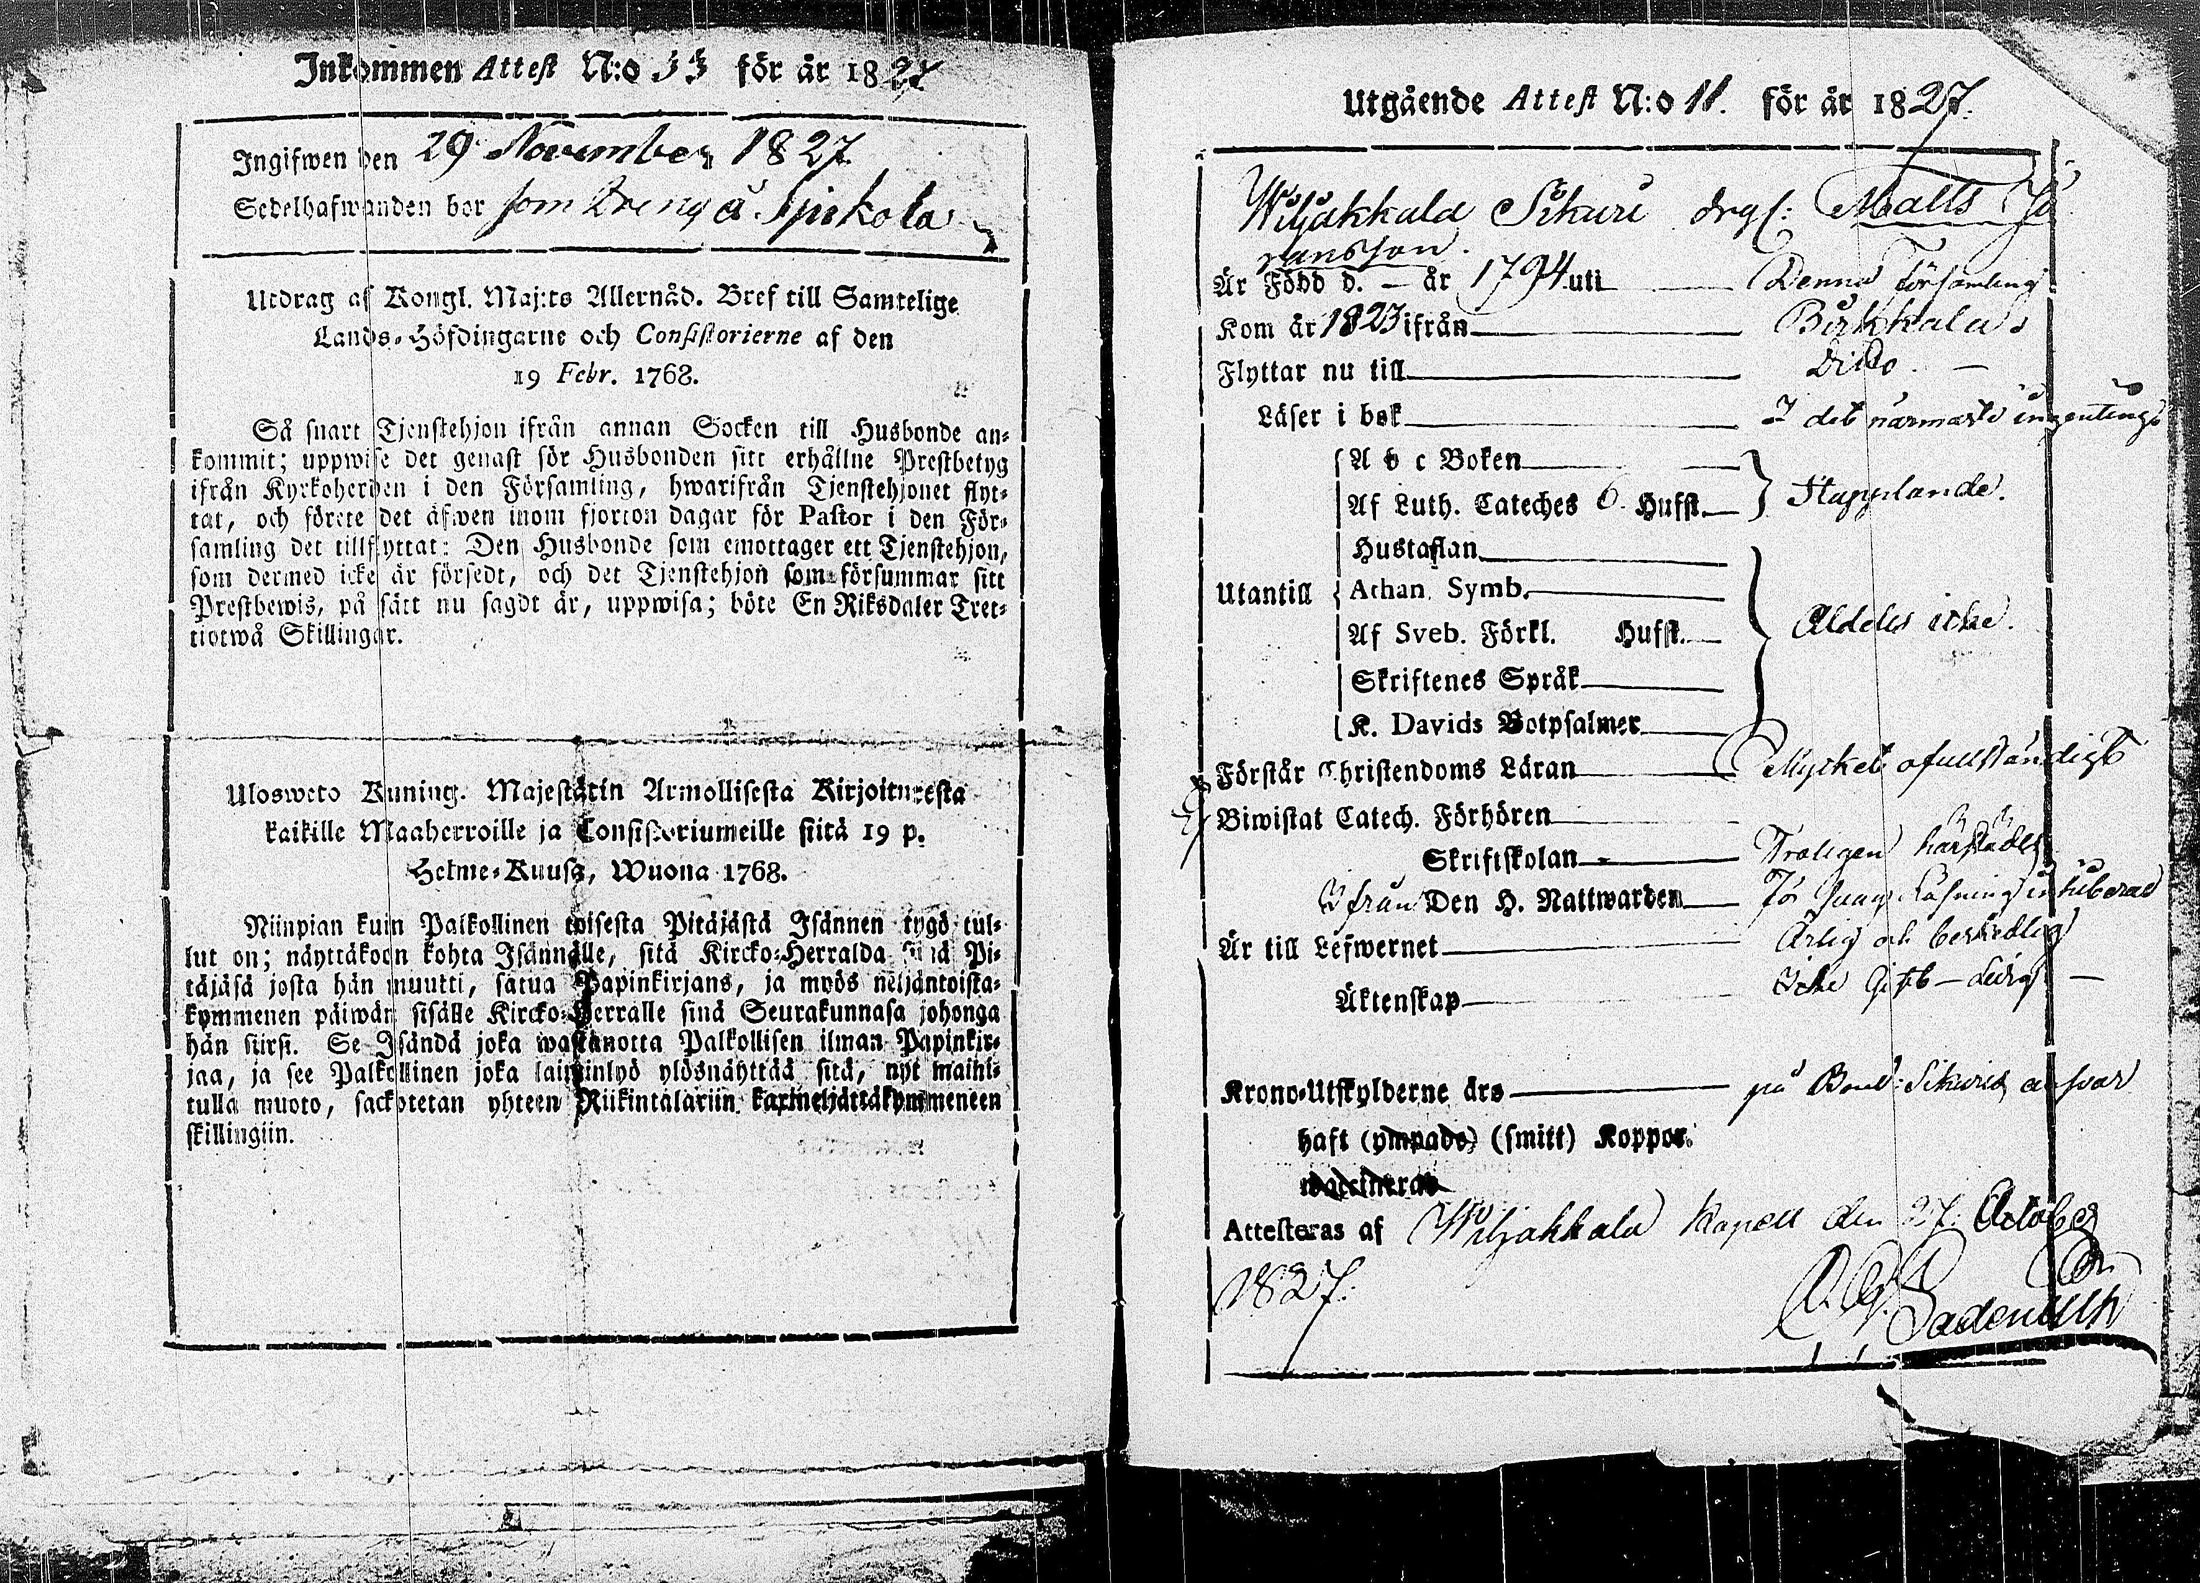 Inkommen Attest N:o 33 för år 1827
Ingifwen den 29 November 1827.
Sedelhafwanden bor som Dreng å Spirkola
Utdrag af Kongl. Maj:ts Allernåd. Bref till Samtelige
Lands-Höfdingarne och Consistorierne af den
19 Febr. 1768.
Så snart Tjenstehjon ifrån annan Socken till Husbonde an-
kommit; uppwise det genast för Husbonden sitt erhållne Prestbetyg
ifrån Kyrkoherden i den Församling, hwarifrån Tjenstehjonet flyt-
tat, och förete det äfwen inom fjorton dagar för Pastor i den För-
samling det tillflyttat: Den Husbonde som emottager ett Tjenstehjon,
som dermed icke är försedt, och det Tjenstehjon som försummar sitt
Prestbewis, på sätt nu sagdt är, uppwisa; böte En Riksdaler Tret-
tiotwå Skillingar.
Ulosweto Kuning. Majestätin Armollisesta Kirjoituxesta
kaikille Maaherroille ja Consistoriumeille siitä 19 p.
Helme-Kuusa, Wuona 1768.
Niinpian kuin Palkollinen toisesta Pitäjästä Isännen tygö tul-
lut on; näyttäkoon kohta Isännälle, sitä Kircko-Herralda sinä Pi-
täjäsä josta hän muutti, satua Papinkirjans, ja myös neljäntoista-
kymmenen päiwän sisälle Kircko-Herralle sinä Seurakunnasa johonga
hän siirsi. Se Isändä joka wastanotta Palkollisen ilman Papinkir-
jaa, ja see Palkollinen joka laiminlyö ylösnäyttää sitä, nyt mainit-
tulla muoto, sackotetan yhteen Riikintalariin kaxineljättäkymmeneen
skillingiin.
Utgående Attest N:o 11. för år 1827.
Wiljakkala Sikuri drgs: Matts Jö
ransson.
Är Född d. — år 1794 uti Denna Församling
Kom år 1823 ifrån Birkkala
Flyttar nu till Ditto. —
Läser i bok I det närmaste ingenting
A b c Boken
Af Luth. Cateches 6. Hufst. Stapplande.
Hustaflan
Utantill Athan. Symb.
Af Sveb. Förkl. Hufst. Aldeles icke.
Skriftenes Språk
K. Davids Botpsalmer
Förstår Christendoms Läran Mycket ofullständigt
Biwistat Catech. Förhören
Skriftskolan Troligen härstädes
Ifrån Den H. Nattwarden för swag Läsning
Är till Lefwernet Ärlig och beskedlig
Äktenskap Icke Gift — Ledig —
Krono-Utskylderne års på Bond: Sikuris answar
haft (ympade) (smitt) Koppor.
waccinerad
Attesteras af Wiljakkala Kapell den 27. October
1827.